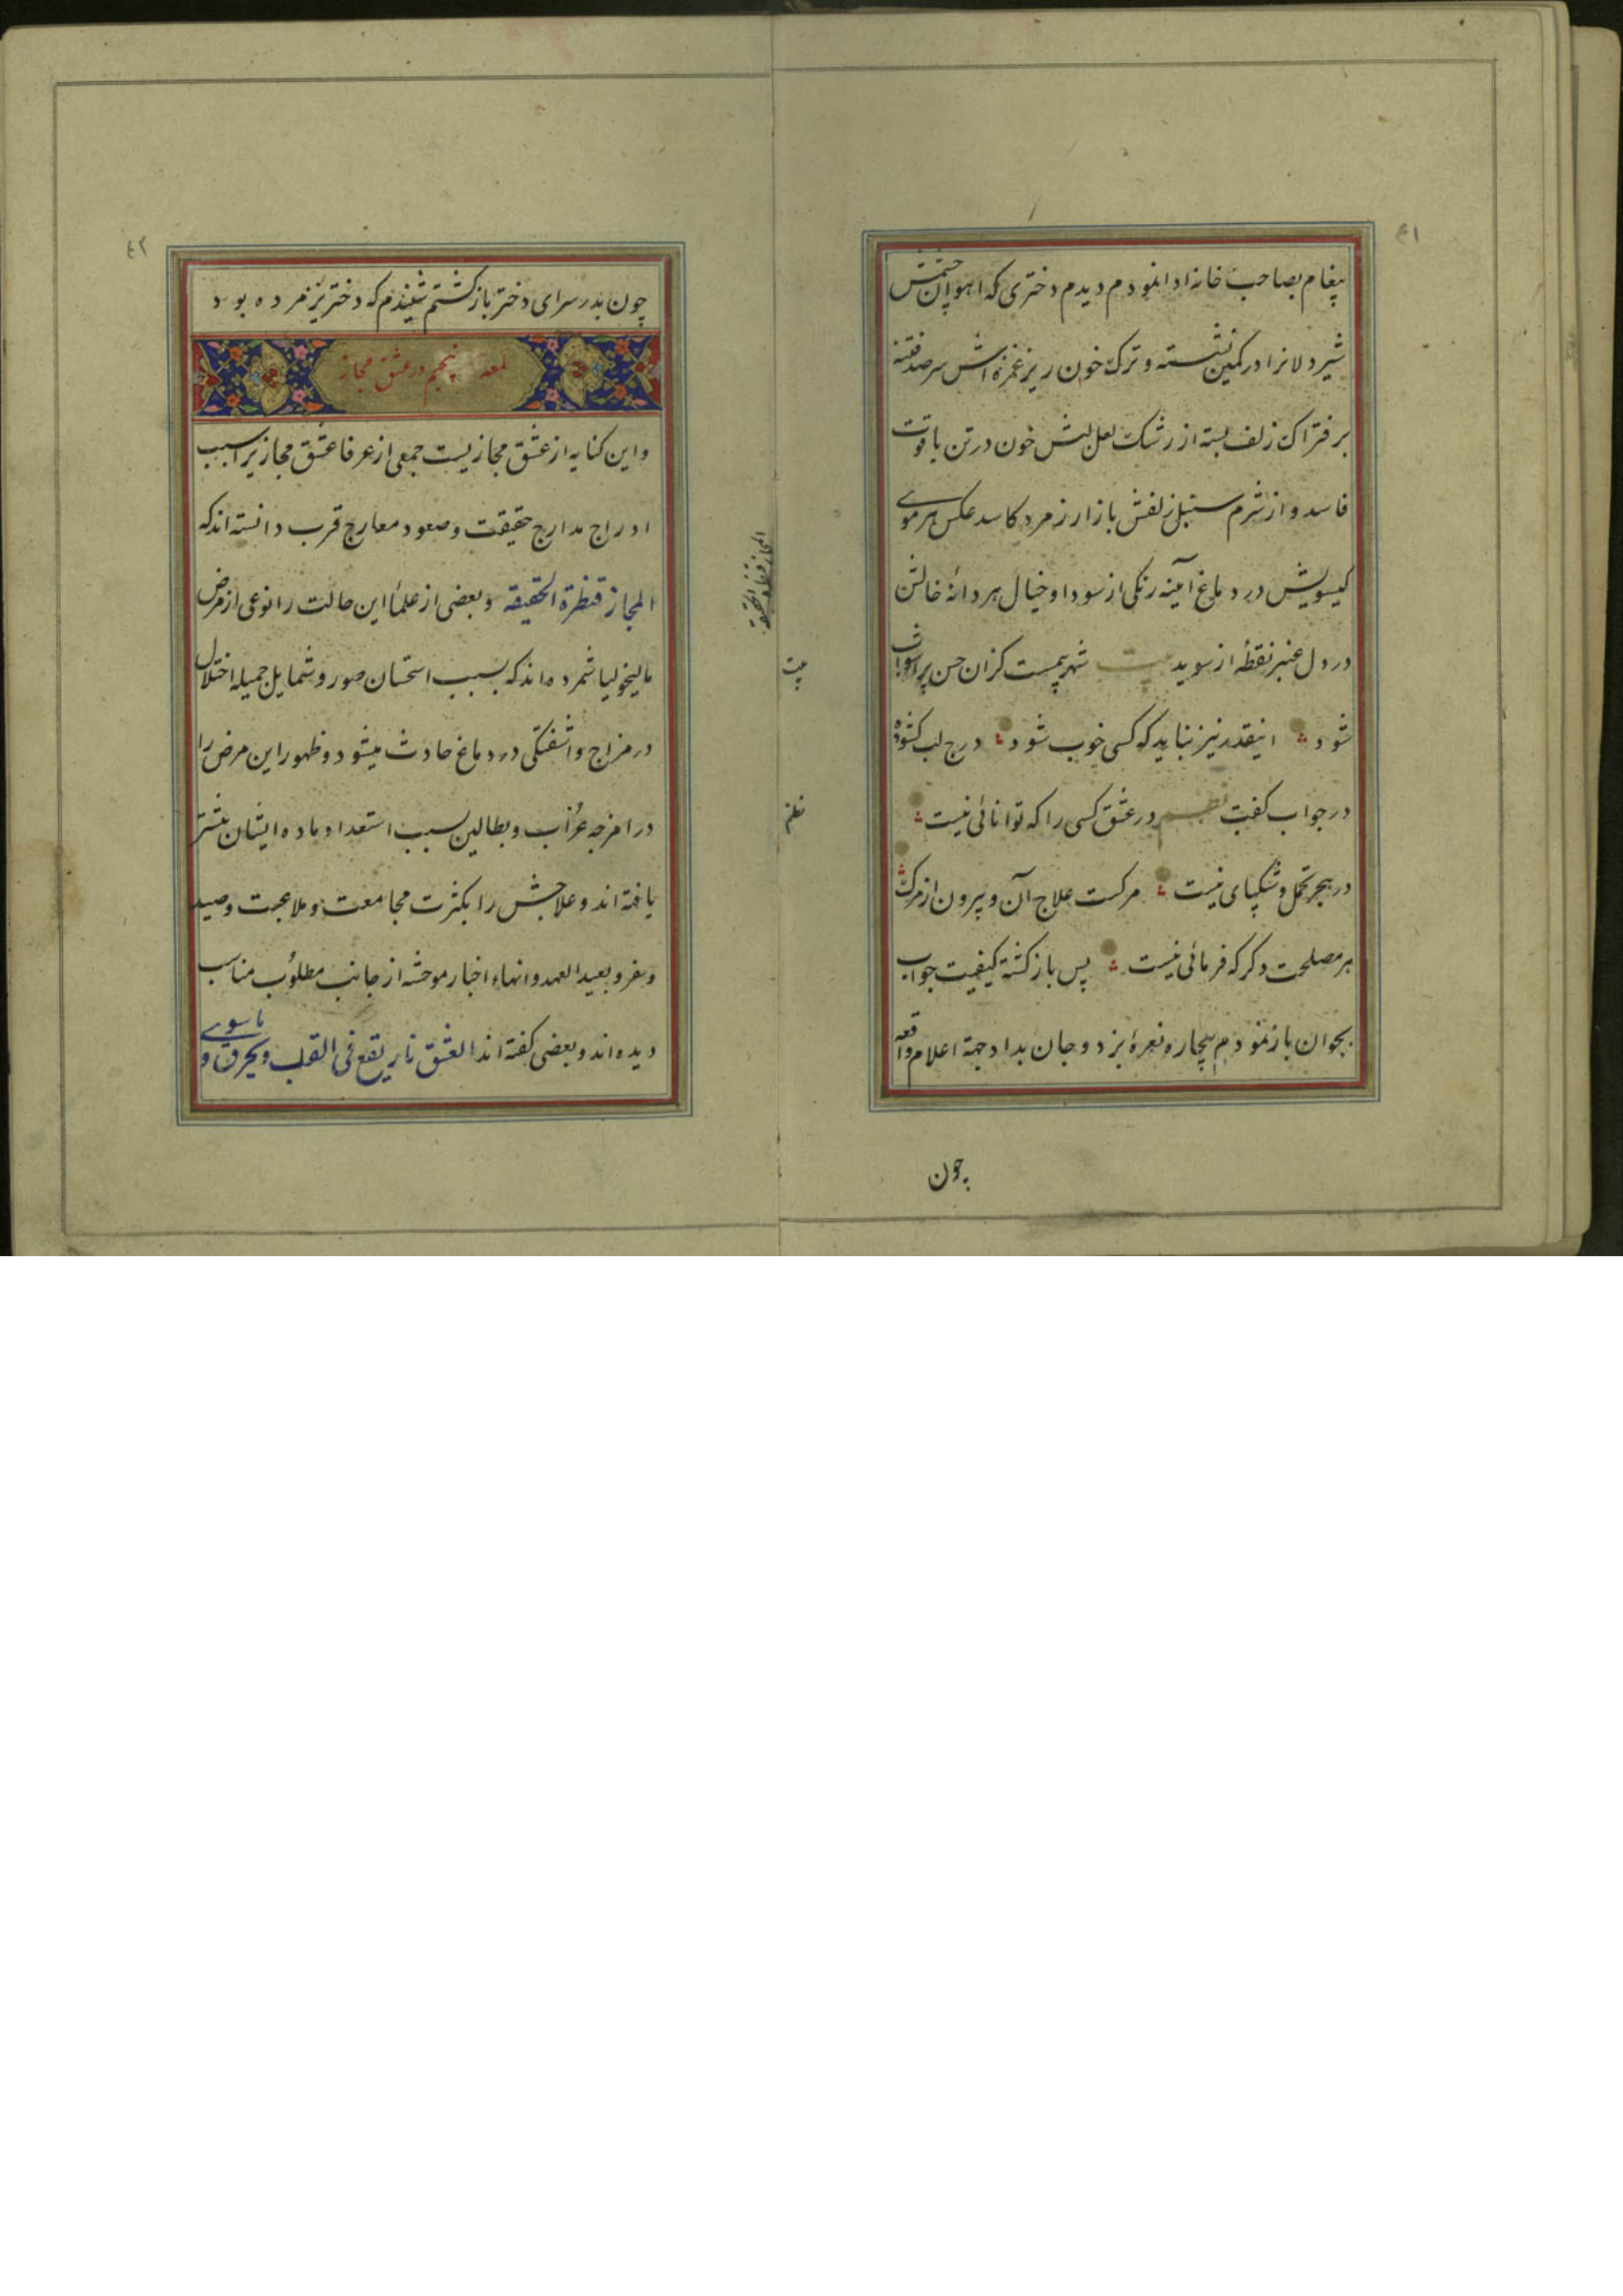 ٤١
پیغام بصاحب خانه ادا نمودم دیدم دختری که اهوان چشمش
شیر دلانرا در کمین نشسته و ترک خون ریز غمزه اش سر صد فتنه
بر فتراک زلف بسته از رشک لعل لبش خون در تن یاقوت
فاسد و از شرم سنبل زلفش بازار زمرد کاسد عکس هر موی
کیسویش در دماغ آینه رنکی از سودا و خیال هر دانه خالش
در دل عنبر نقطه از سوید بیت شهریست کزان حسن پر اشوب
شود اینقدر نیز نباید که کسی خوب شود درج لب کشوده
در جواب کفت نظم در عشق کسی را که توانائی نیست
در هجر تحمل و شکیبای نیست مرکست علاج آن و بیرون از مرک
هر مصلحت دکر که فرمائی نیست پس باز کشته کیفیت جواب
بجوان باز نمودم بیچاره نعرهٔ بزد و جان بداد جهة اعلام واقعه
چون
بیت
نظم
٤٢
چون بدر سرای دختر باز کشتم شنیدم که دختر نیز مرده بود
لمعه پنجم در عشق مجاز
و این کنایه از عشق مجازیست جمعی از عرفا عشق مجازیرا سبب
ادراج مدارج حقیقت و صعود معارج قرب دانسته اند که
المجاز قنطرة الحقیقه و بعضی از علما این حالت را نوعی از مرض
مالیخولیا شمرده اند که بسبب استحسان صور و شمایل جمیله اختلال
در مزاج و اشفتکی در دماغ حادث میشود و ظهور این مرض را
در امزجه عزاب و بطالین بسبب استعداد ماده ایشان بیشتر
یافته اند و علاجش را بکثرت مجامعت و ملاعبت و صید
و سفر و بعید العهد و انهاء اخبار موحشه از جانب مطلوب مناسب
دیده اند و بعضی کفته اند العشق نار یقع فی القلب و یحرق
ما سوی
المجاز قنطرة الحقیقه